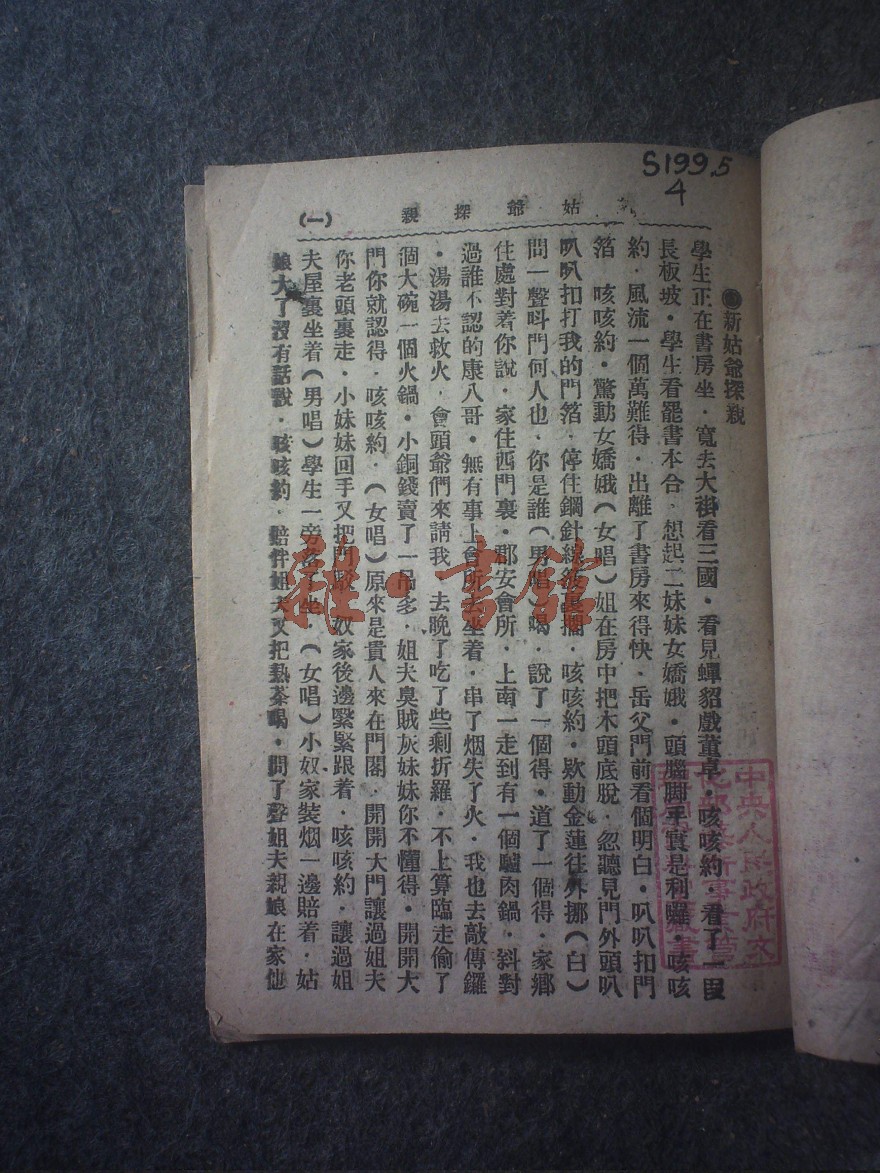 S199.5
4
姑爺探親
(一)
新姑爺探親
學生正在書房坐．寬去大褂看三國．看見蟬貂戲董卓．咳咳約．看了一段
長板坡．學生看罷書本合．想起二妹妹女嬌娥．頭腦脚手實是利囉．咳咳
約．風流一個萬難得．出離了書房來得快．岳父門前看個明白．叭叭扣門
箔　咳咳約．驚動女嬌娥(女唱)姐在房中把木頭底脫．忽聽見門外頭叭
叭叭扣打我的門落．停住鋼針線　裏擱．咳咳約．欵動金蓮往外挪(白)
問一聲呌門何人也．你是誰(男唱)喝．說了一個得．道了一個得．家鄉
住處對着你說．家住西門裏．郡安會所．上南一走到有一個驢肉鍋．斜對
過誰不認的康八哥．無有事上會所去坐着．串了烟失了火．我也去敲傳鑼
．湯湯去救火．會頭爺們來請我．去晚了吃了些剩折羅．不上算臨走偷了
個大碗一個火鍋．小銅錢賣了一吊多．姐夫臭賊灰妹妹你不懂得．開開大
門你就認得．咳咳約．(女唱)原來是貴人來在門閣．開開大門讓過姐夫
你老頭裏走．小妹妹回手又把門　．奴家後邊緊緊跟着．咳咳約．讓過姐
夫屋裏坐着(男唱)學生一旁落了坐．(女唱)小奴家裝烟一邊賠着．姑
娘大了沒有話說．咳咳約．賠伴姐夫又把熱茶喝．問了聲姐夫親娘在家他
中央人民政府文
藏書
雜·書館